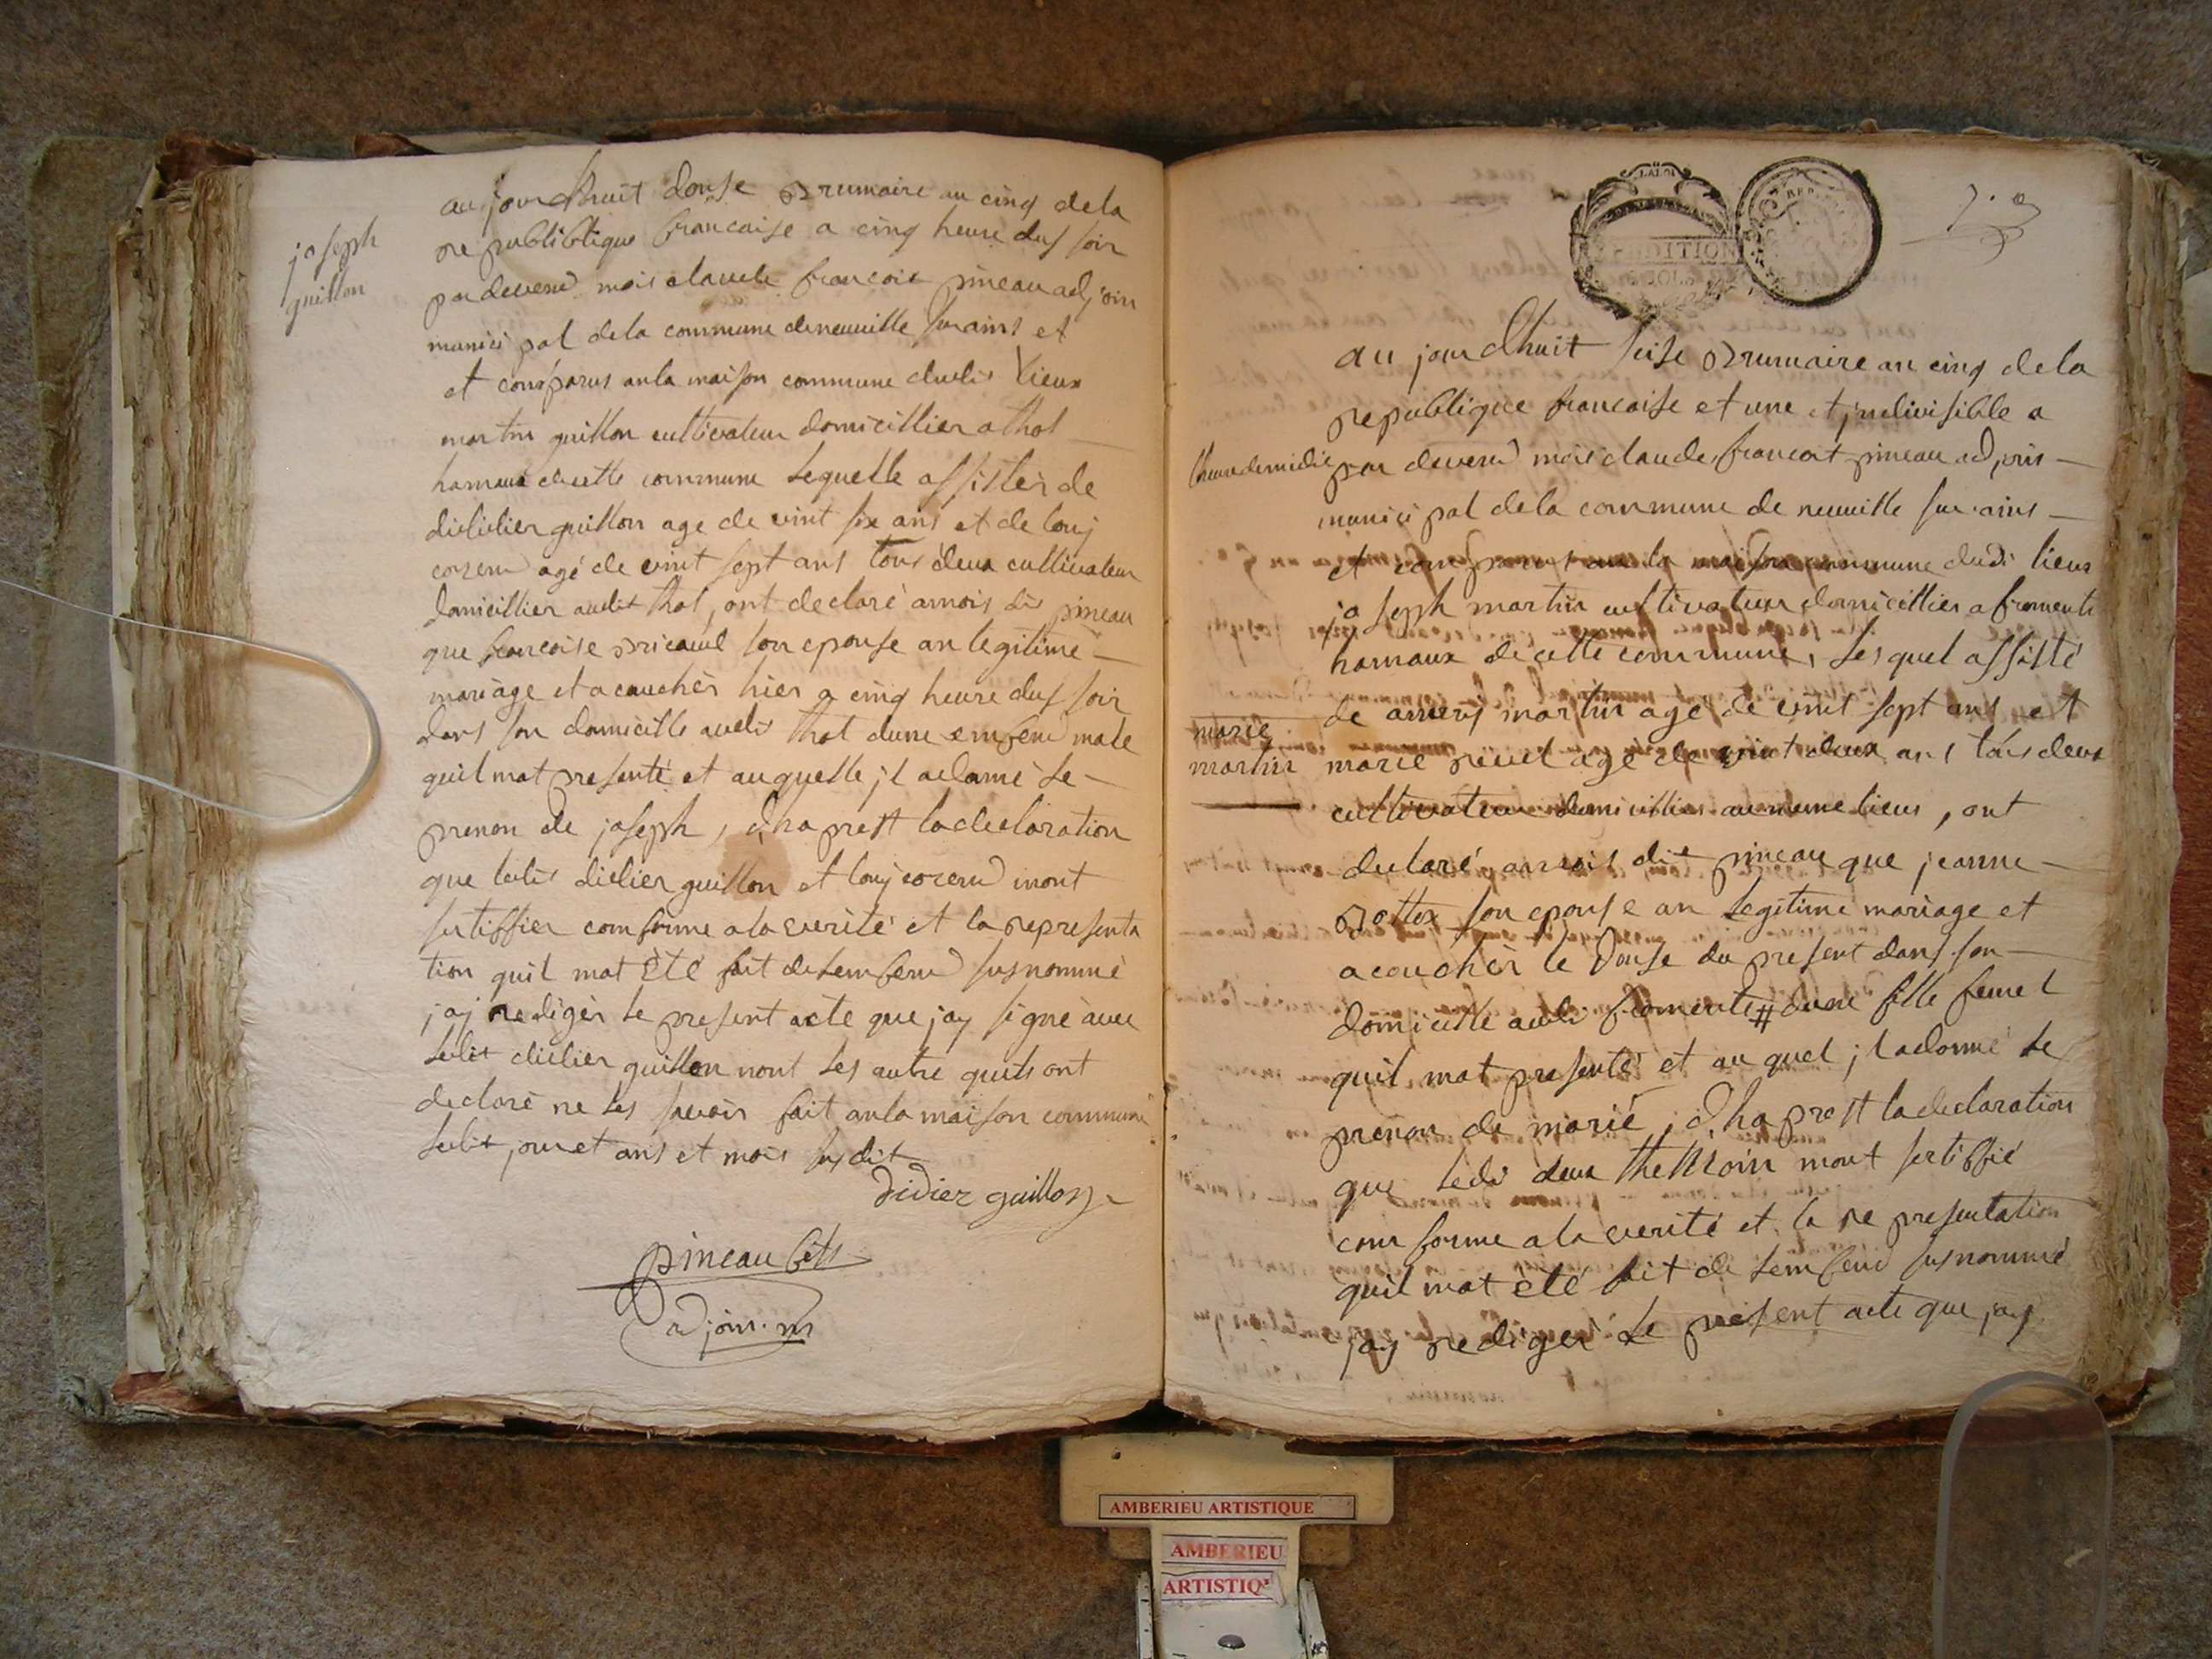 joseph
guillon
aujourdhuit douse brumaire an cinq dela
republiblique francaise a cinq heure dus soir
pardevend mois claude francois pineau adjoin
munici pal dela commune deneuville sur ains et
et comparus anla maison commune dudis lieux
martin guillon cultivateur domicillier a thol
hamaux decette commune lequelle assister de
dididier guillon age de vint six ans et de louj
agé de vint sept ans tous deux cultivateur
domicillier audit thol, ont declaré amois dis pineau
que francoise son epouse an legitime
mariage et acouchér hier a cinq heure dus soir
dans son domicille audis thol dune emfend male
quil mat presenté et auquelle jl adonné le
prenon de joseph, d'haprest ladeclaration
que ledis didier guillon et louj mont
sertiffier comforme ala verité et la represente
tion quil mat été fait delemfend susnommé
jaj redigér le present acte que jay signé avec
ledit didier guillon nont les autre quils ont
declaré ne les savoir fait anla maison commune
ledit jour et ans et mois susdit
didier guillon
pineau fils
adjoin. m
LA LOI
REP
au jourdhuit seise brumaire an cinq dela
republique francaise et une et jndivisible a
lheure demidis par devend mois claude francoit pineau adjoin
munici pal dela commune de neuville sur ains
et comparus anla maison commune dudi lieux
joseph martin cultivateur domicillier a fromente
hamaux decette commune, lesquel assisté
de martin age de vint sept ans et
marie
martin
marie age de vint deux ans tous deux
cultivateur domicillier aumeme lieux, ont
declaré amois dit pineau que jeanne
son epouse an legitime mariage et
acouchér le douse du present dans son
domicille audi fromente # dune fille femel
quil mat presenté et au quel jl adonné le
prenon de marie, d'haprest ladeclaration
que ledi deux themoin mont sertiffié
comforme ala verité et la representation
quil mat été fait de lemfend susnommé
jay redigér le present acte que jay
AMBERIEU ARTISTIQUE
AMBERIEU
ARTISTIQ